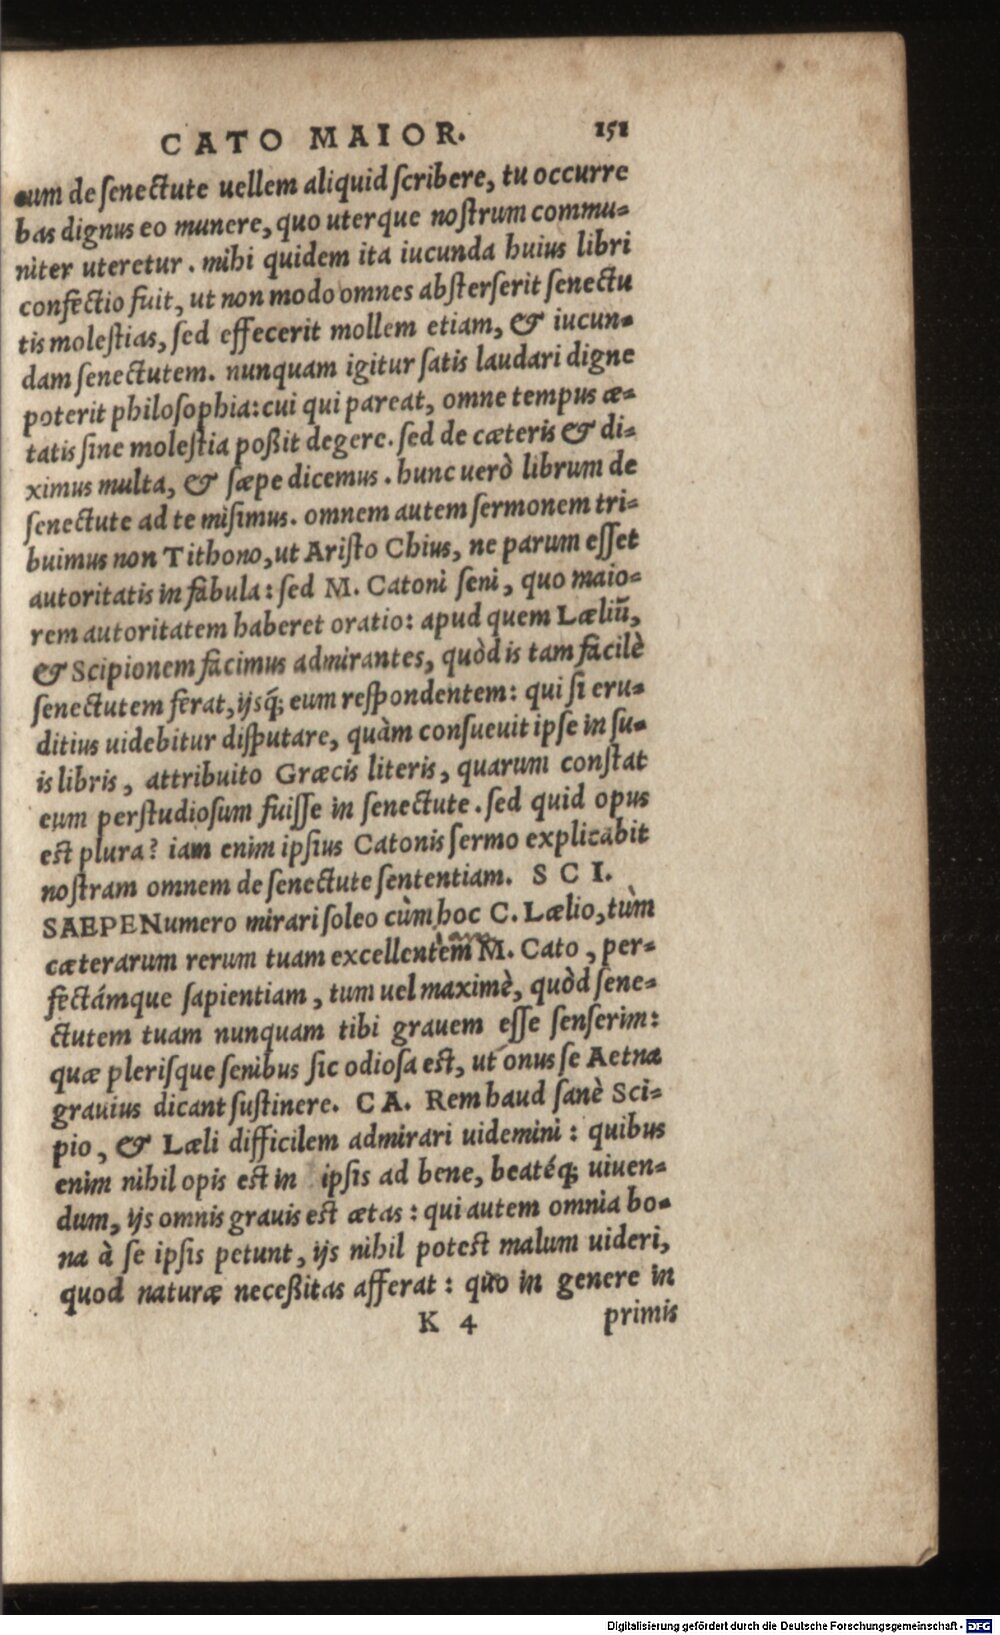 CATO MAIOR. 151
cum de ſenectute uellem aliquid ſcribere, tu occurre
bas dignus eo munere, quo uterque noſtrum commu-
niter uteretur. mihi quidem ita iucunda huius libri
confectio fuit, ut non modo omnes abſterſerit ſenectu
tis moleſtias, ſed effecerit mollem etiam, & iucun-
dam ſenectutem. nunquam igitur ſatis laudari digne
poterit philoſophia: cui qui pareat, omne tempus æ-
tatis ſine moleſtia poßit degere. ſed de cæteris & di-
ximus multa, & ſæpe dicemus. hunc uerò librum de
ſenectute ad te miſimus. omnem autem ſermonem tri-
buimus non Tithono, ut Ariſto Chius, ne parum eſſet
autoritatis in fabula: ſed M. Catoni ſeni, quo maio-
rem autoritatem haberet oratio: apud quem Læliũ,
& Scipionem facimus admirantes, quòd is tam facilè
ſenectutem ferat, ijsq́; eum reſpondentem: qui ſi eru-
ditius uidebitur diſputare, quàm conſueuit ipſe in ſu-
is libris, attribuito Græcis literis, quarum conſtat
eum perſtudioſum fuiſſe in ſenectute. ſed quid opus
est plura? iam enim ipſius Catonis ſermo explicabit
noſtram omnem de ſenectute ſententiam. S C I.
SAEPENumero mirari ſoleo cùm hoc C. Lælio, tùm
cæterarum rerum tuam excellentem M. Cato, per-
fectámque ſapientiam, tum uel maximè, quòd ſene-
ctutem tuam nunquam tibi grauem eſſe ſenſerim:
quæ pleriſque ſenibus ſic odioſa est, ut onus ſe Aetna
grauius dicant ſuſtinere. C A. Rem haud ſanè Sci-
pio, & Læli difficilem admirari uidemini: quibus
enim nihil opis est in ipſis ad bene, beatéq; uiuen-
dum, ijs omnis grauis est ætas: qui autem omnia bo-
na à ſe ipſis petunt, ijs nihil potest malum uideri,
quod naturæ neceßitas afferat: quo in genere in
K 4 primis
Digitalisierung gefördert durch die Deutsche Forschungsgemeinschaft - DFG